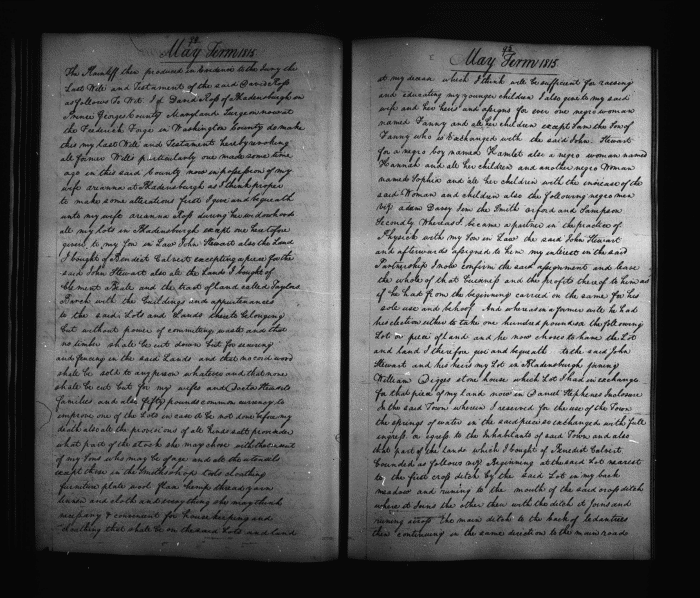 92
May Term 1815
The Plaintiff then produced in Evidence to the Jury the
Last Will and Testament of the said David Ross
as follows To Wit I David Ross of Bladensburgh in
Prince Georges County Maryland Surgeon now at
the Frederick Forge in Washington County do make
this my Last Will and Testament hereby revoking
all former Wills particularly one made some time
ago in this said County now in possession of my
wife arianna at Bladensburgh as I think proper
to make some alterations first I give and bequeath
unto my wife arianna Ross during her widowhood
all my Lots in Bladensburgh except one heretofore
given to my Son in Law John Stewart also the Land
I bought of Benedict Calvert excepting a piece for the
said John Stewart also all the Lands I bought of
Clement Beale and the tract of Land called Taylors
with the buildings and appurtenances
to the said Lots and Lands thereto belonging
but without power of committing waste and that
no timber shall be cut down but for
and fencing in the said Lands and that no cord wood
shall be sold to any person whatever and that none
shall be cut but for my wifes and Doctor Stewarts
families and also fifty pounds common currency to
improve one of the Lots in case it be not done before my
death also all the provisions of all kinds salt provender
what part of the stock she may chose with the consent
of my Sons who may be of age and all the utensils
except those in the Smiths shop tools cloathing
furniture plate wool flax hemp thread yarn
linnen and cloth and every thing she may think
necessary & convenient for house keeping and
cloathing that shall be on the said Lots and land
93
May Term 1815
at my decease which I think will be sufficient for raising
and educating my younger children I also give to my said
wife and her heirs and assigns for ever one negro woman
named Fanny and all her children except the Son of
Fanny who is Exchanged with the said John Stewart
for a negro boy named Hamlet also a negro woman named
Hannah and all her children and another negro Woman
named Sophia and all her children with the increase of the
said Woman and children also the following negro men
viz adam Davy Jem the Smith orford and Sampson
Secondly Whereas I became a partner in the practice of
Physick with my Son in Law the said John Stewart
and afterwards assigned to him my interest in the said
Partnership I now confirm the said assignment and leave
the whole of that business and the profits thereof to him as
if he had from the beginning carried on the same for his
sole use and behoof And whereas in a former will he had
his election either to take one hundred pounds or the following
Lot or piece of land and he now choses to have the Lot
and land I therefore give and bequeath to the said John
Stewart and his heirs my Lot in Bladensburgh joining
William Digges stone house which Lot I had in exchange
for that piece of my Land now in Daniel Stephenes Inclosure
In the said Town wherein I reserved for the use of the Town
the springs of water in the said piece so exchanged with full
ingress or egress to the Inhabitants of said Town and also
that part of the Lands which I bought of Benedict Calvert
bounded as follows viz Beginning at the said Lot nearest
to the first crop ditch by the said Lot in my back
meadow and runing to the mouth of the said crop ditch
where it Joins the other then with the ditch it Joins and
runing across the main ditch to the bank of
then continuing in the same direction to the main road